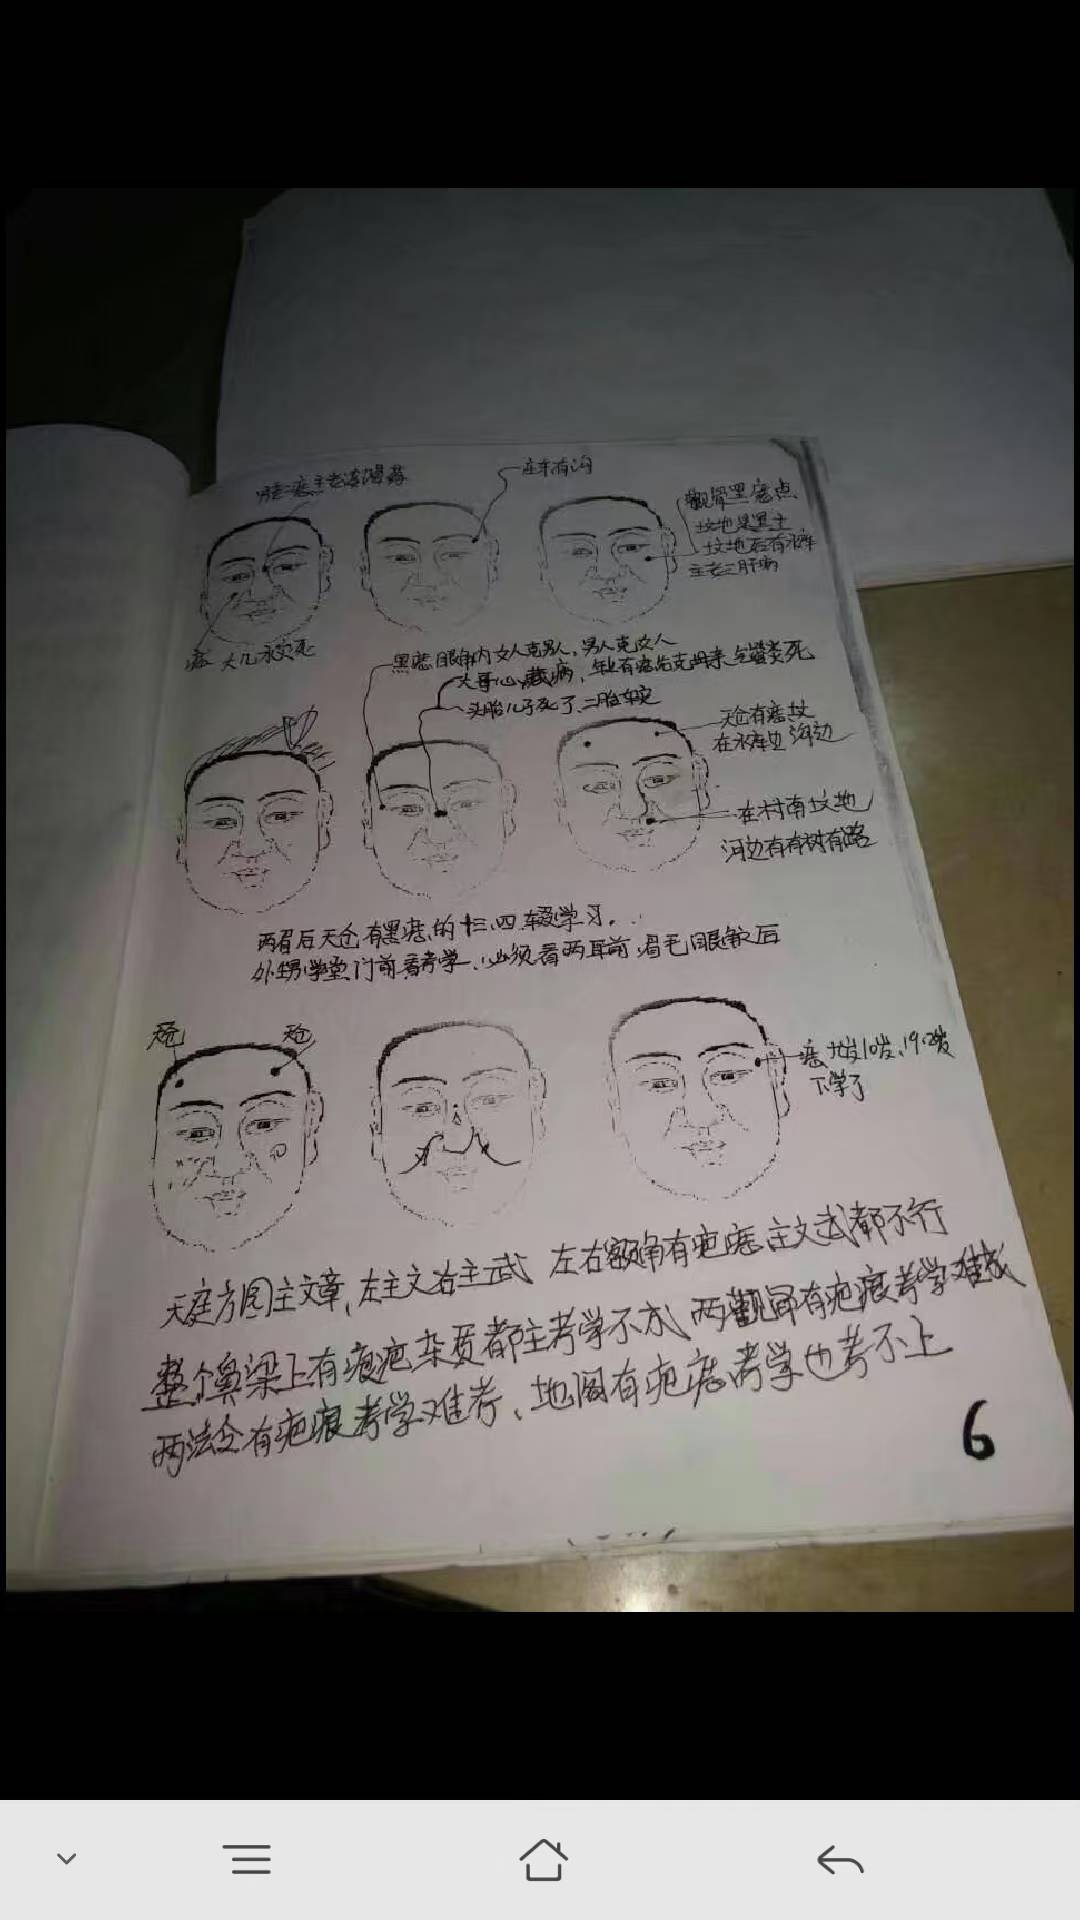 庄东有沟
颧骨黑痣点
坟地黑土
坟地后有水库
主老三肝病
痣
黑痣眼角内女人克男人，男人克女人
大哥心脏病，
头胎儿子死了、二胎
天仓有痣坟
在水库边沟边
在村南坟地
河边有有树有路
两眉后天仓有黑痣的十三、四辍学习，
外甥学堂门前看考学、必须看两耳前眉毛眼
天仓
天仓
痣
下学了
天庭方圆主文章，左主文右主武 左右额角有疤痣主文武都不行
整个鼻梁上有痕疤杂质都主考学不成 两颧骨有疤痕考学难成
两法令有疤痕考学难考、地阁有疤痣考学也考不上
6